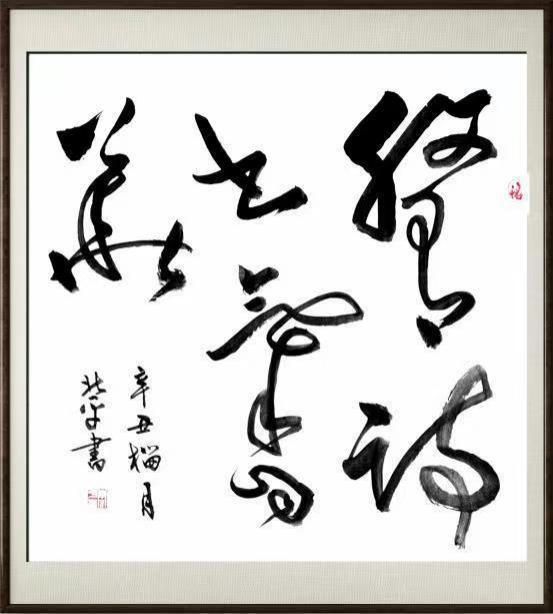 腹有诗
书气自
华
辛丑榴月
書